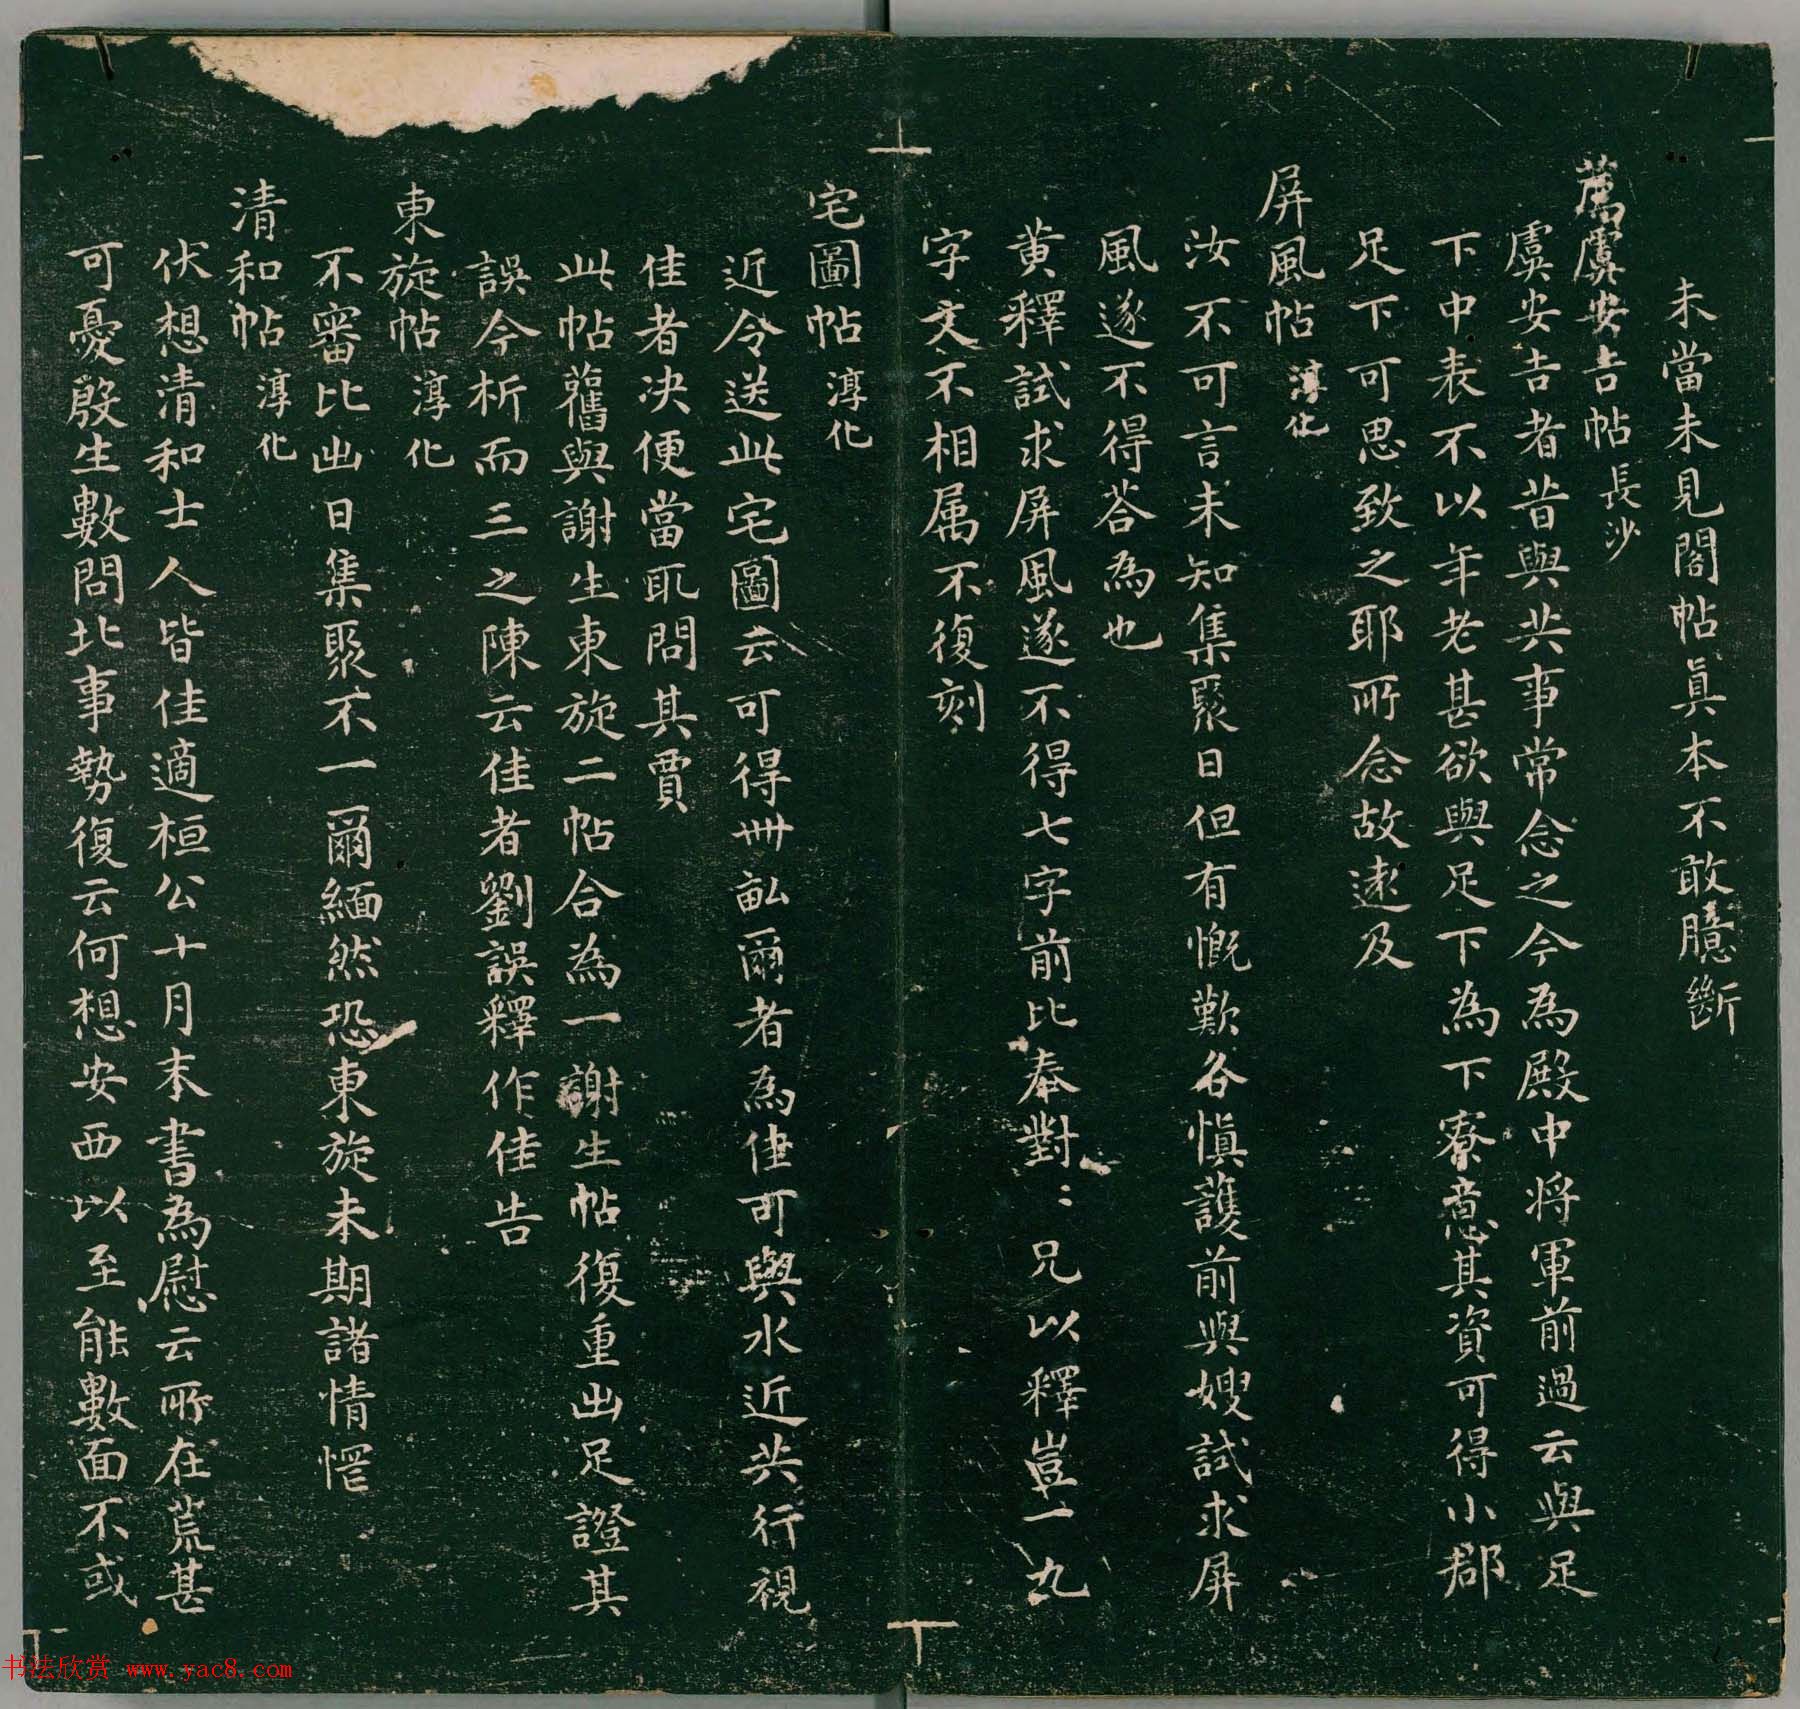 未當未見閣帖眞本不敢臆斷
薦虞安吉帖 長沙
虞安吉者昔與共事常念之今為殿中将軍前過云與足
下中表不以年老甚欲與足下為下寮意其資可得小郡
足下可思致之耶所念故遠及
屏風帖 淳化
汝不可言未知集聚日但有慨歎各慎護前與嫂試求屏
風遂不得荅為也
黄釋試求屏風遂不得七字前比奉對〻兄以釋豈一九
字文不相属不復刻
宅圖帖 淳化
近令送此宅圖云可得卌畝爾者為佳可與水近共行視
佳者决便當取問其賈
此帖舊與謝生東旋二帖合為一謝生帖復重出足證其
誤今析而三之陳云佳者劉誤釋作佳告
東旋帖 淳化
不審比出日集聚不一爾緬然恐東旋未期諸情惘
清和帖 淳化
伏想清和士人皆佳適桓公十月末書為慰云所在荒甚
可憂殷生數問北事勢復云何想安西以至能數面不或
书法欣赏 www.yac8.com